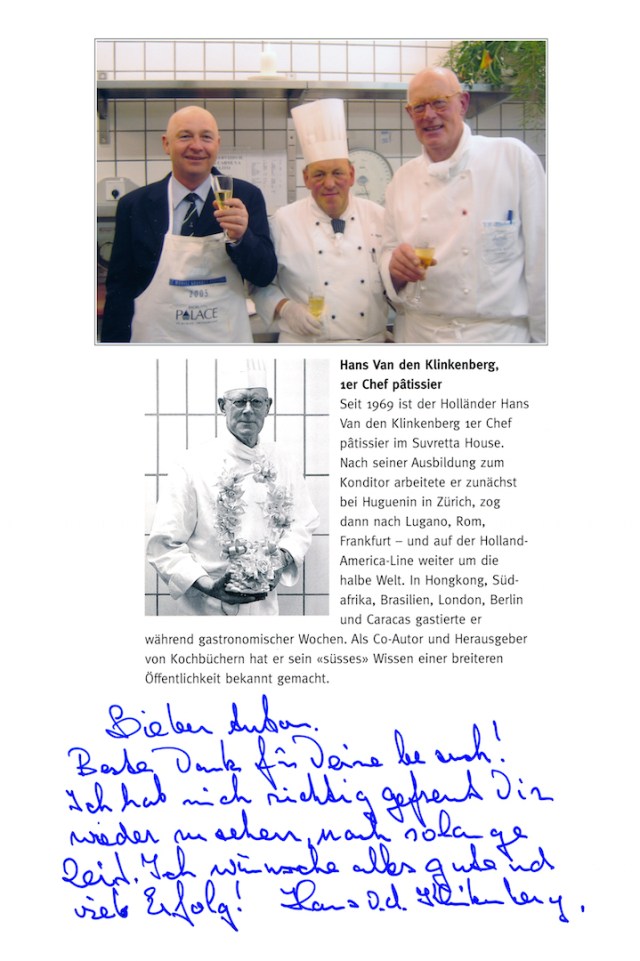 2005
PALACE
Hans Van den Klinkenberg,
1er Chef pâtissier
Seit 1969 ist der Holländer Hans
Van den Klinkenberg 1er Chef
pâtissier im Suvretta House.
Nach seiner Ausbildung zum
Konditor arbeitete er zunächst
bei Huguenin in Zürich, zog
dann nach Lugano, Rom,
Frankfurt – und auf der Holland-
America-Line weiter um die
halbe Welt. In Hongkong, Süd-
afrika, Brasilien, London, Berlin
und Caracas gastierte er
während gastronomischer Wochen. Als Co-Autor und Herausgeber
von Kochbüchern hat er sein «süsses» Wissen einer breiteren
Öffentlichkeit bekannt gemacht.
Lieber Anton.
Beste Dank für Deine besuch!
Ich hab mich richtig gefreut Dir
wieder zu sehen, nach solange
Zeit. Ich wünsche alles gute und
viele Erfolg! Hans v.d. Klinkenberg.